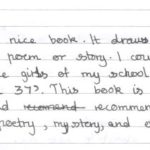 nice book. It draws
poem or story. I cou
e girls of my school
37). This book is
d recommend recommen
poetry, mystery, and e